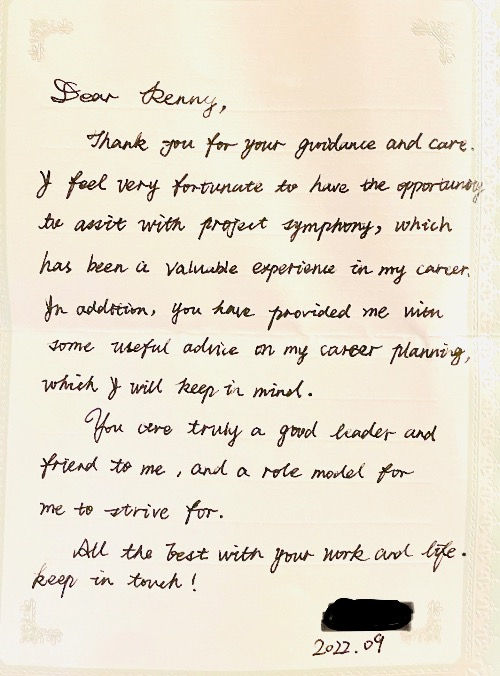 Dear Kenny,
Thank you for your guidance and care.
I feel very fortunate to have the opportunity
to assit with project symphony, which
has been a valuable experience in my career.
In addition, you have provided me with
some useful advice on my career planning,
which I will keep in mind.
You were truly a good leader and
friend to me, and a role model for
me to strive for.
All the best with your work and life.
keep in touch!
2022.09